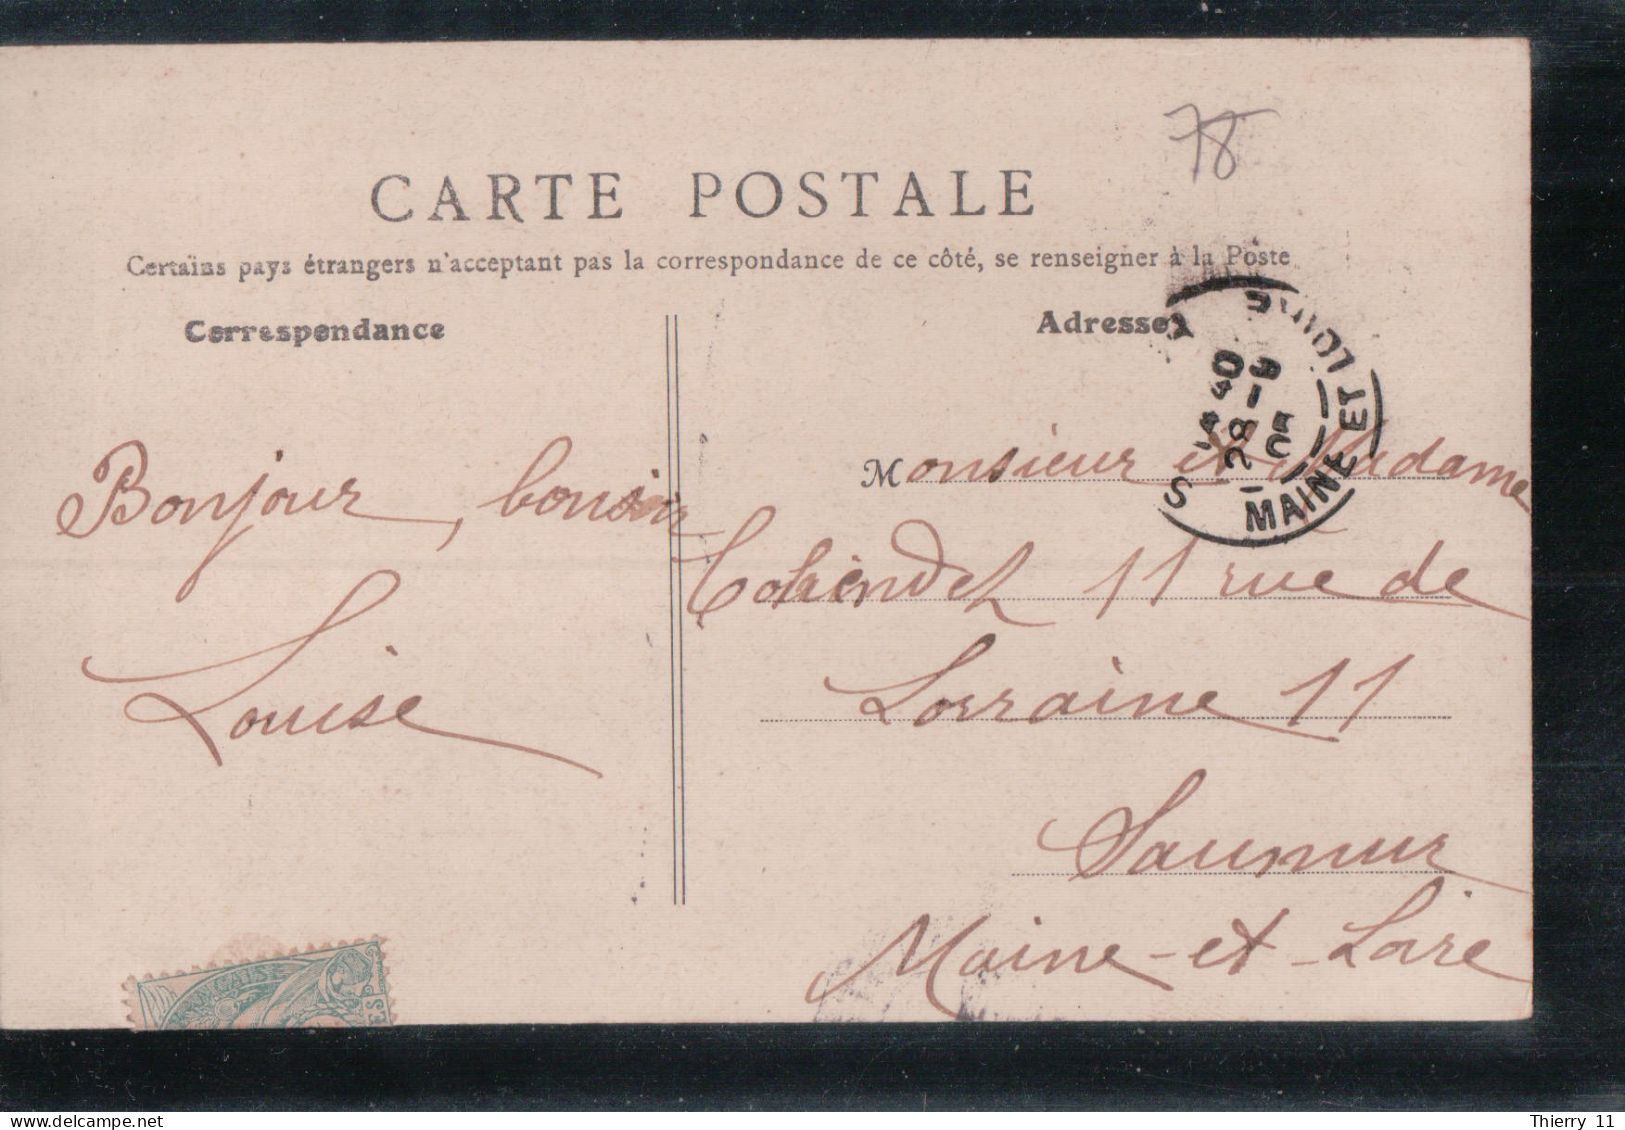 78
CARTE POSTALE
Certains pays étrangers n'acceptant pas la correspondance de ce côté, se renseigner à la Poste
Correspondance
Adresse
Bonjour, bonsoir
Louise
Monsieur et Madame
11 rue de
Lorraine 11
Saumur
Maine-et-Loire
MAINE ET LOIRE
28
Thierry 11